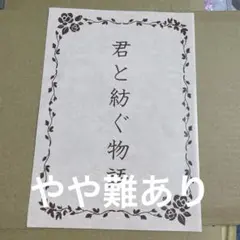 君と紡ぐ物語
やや難あり